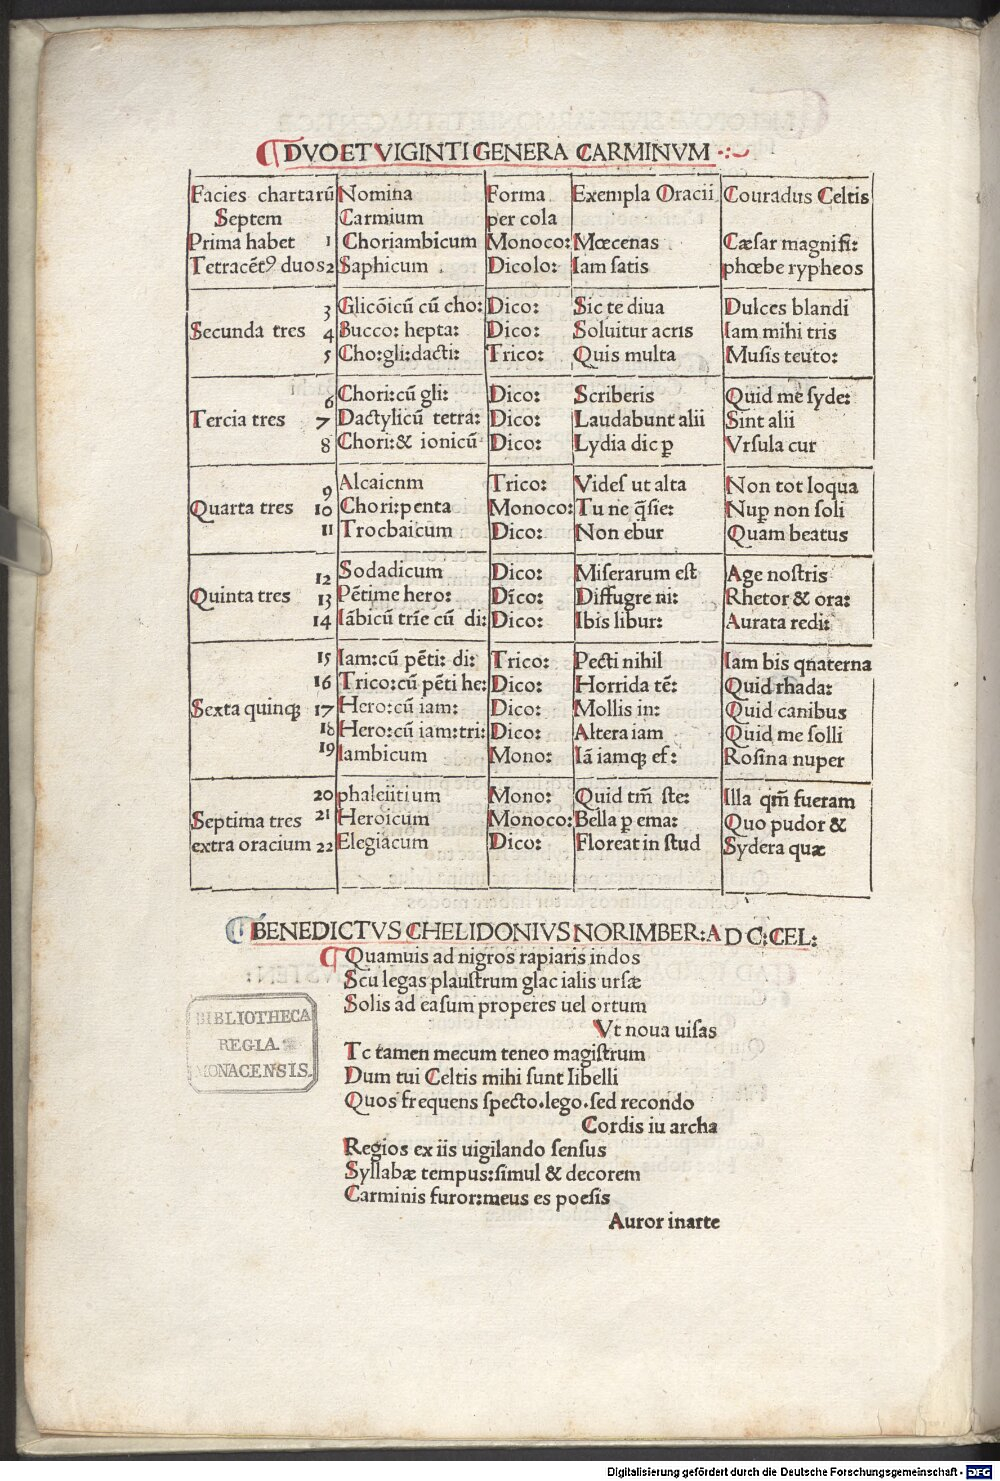 DVO ET VIGINTI GENERA CARMINVM
Facies chartarū Nomina Forma Exempla Oracii Couradus Celtis
Septem Carmium per cola
Prima habet 1 Choriambicum Monoco: Mœcenas Cæsar magnifi:
Tetracēt⁹ duos 2 Saphicum Dicolo: Iam satis phœbe rypheos
3 Glicōicū cū cho: Dico: Sic te diua Dulces blandi
Secunda tres 4 Bucco: hepta: Dico: Soluitur acris Iam mihi tris
5 Cho:gli:dacti: Trico: Quis multa Musis teuto:
6 Chori:cū gli: Dico: Scriberis Quid me syde:
Tercia tres 7 Dactylicū tetra: Dico: Laudabunt alii Sint alii
8 Chori:& ionicū Dico: Lydia dic ꝑ Vrsula cur
9 Alcaicnm Trico: Vides ut alta Non tot loqua
Quarta tres 10 Chori:penta Monoco: Tu ne q̄sie: Nuꝑ non soli
11 Trocbaicum Dico: Non ebur Quam beatus
12 Sodadicum Dico: Miserarum est Age nostris
Quinta tres 13 Pētime hero: Dīco: Diffugre ni: Rhetor & ora:
14 Iābicū trīe cū di: Dico: Ibis libur: Aurata redi:
15 Iam:cū pēti: di: Trico: Pecti nihil Iam bis qnaterna
16 Trico:cū pēti he: Dico: Horrida tē: Quid rhada:
Sexta quinqꝫ 17 Hero:cū iam: Dico: Mollis in: Quid canibus
18 Hero:cū iam:tri: Dico: Altera iam Quid me solli
19 Iambicum Mono: Iā iamqꝫ ef: Rosina nuper
20 phaleiitium Mono: Quid tm̄ ste: Illa qm̄ fueram
Septima tres 21 Heroicum Monoco: Bella ꝑ ema: Quo pudor &
extra oracium 22 Elegiacum Dico: Floreat in stud Sydera quæ
BENEDICTVS CHELIDONIVS NORIMBER: A D C: CEL:
Quamuis ad nigros rapiaris indos
Scu legas plaustrum glac ialis ursæ
Solis ad easum properes uel ortum
Vt noua uisas
Tc tamen mecum teneo magistrum
Dum tui Celtis mihi sunt libelli
Quos frequens specto.lego.sed recondo
Cordis iu archa
Regios ex iis uigilando sensus
Syllabæ tempus:simul & decorem
Carminis furor:meus es poesis
Auror inarte
BIBLIOTHECA
REGIA
MONACENSIS.
Digitalisierung gefördert durch die Deutsche Forschungsgemeinschaft - DFG